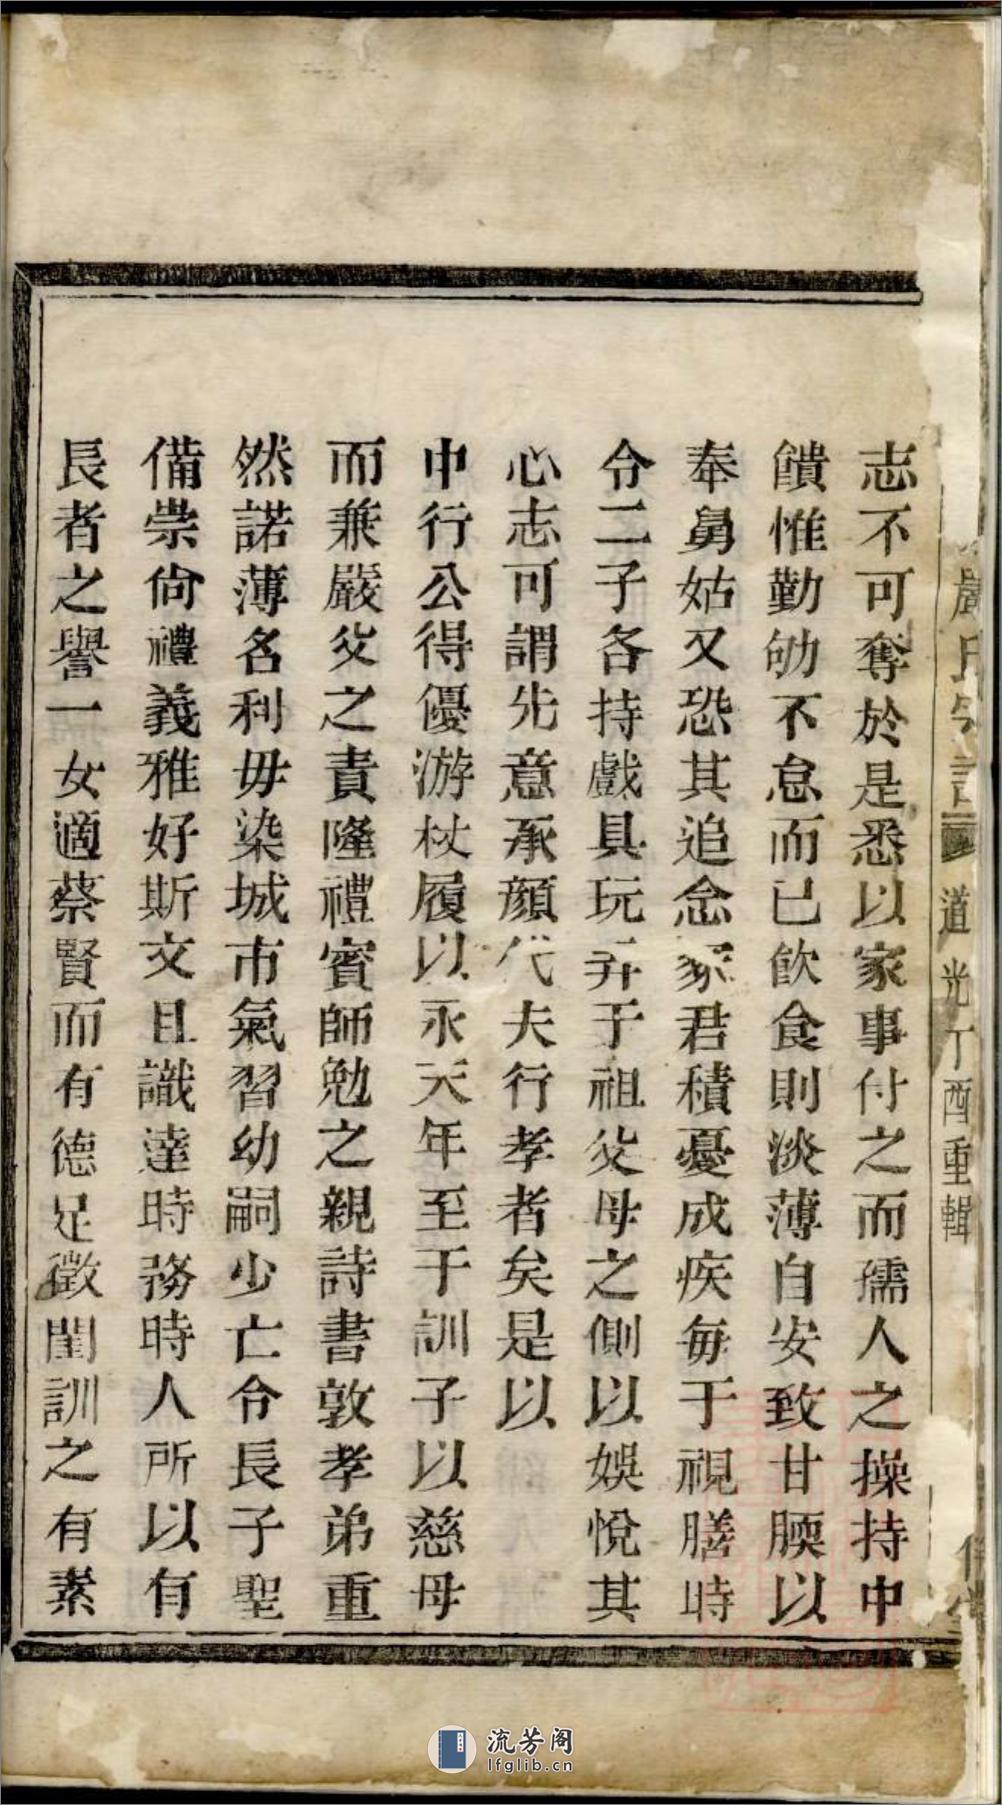 志不可奪於是悉以家事付之而孺人之操持中
饋惟勤劬不怠而已飲食則淡薄自安致甘腝以
奉舅姑又恐其追念家君積憂成疾每于視膳時
令二子各持戲具玩弄于祖父母之側以娛悅其
心志可謂先意承顏代夫行孝者矣是以
中行公得優游杖履以永天年至于訓子以慈母
而兼嚴父之責隆禮賓師勉之親詩書敦孝弟重
然諾薄名利毋染城市氣習幼嗣少亡令長子聖
備崇尙禮義雅好斯文且識達時務時人所以有
長者之譽一女適蔡賢而有德足徵閨訓之有素
氏宗譜
道光丁酉重輯
流芳阁
lfglib.cn